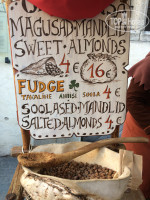 MAGUSAD MANDLID
SWEET ALMONDS
4€ 16€
FUDGE
4€
SOOLASED MANDLID
SALTED ALMONDS 4€